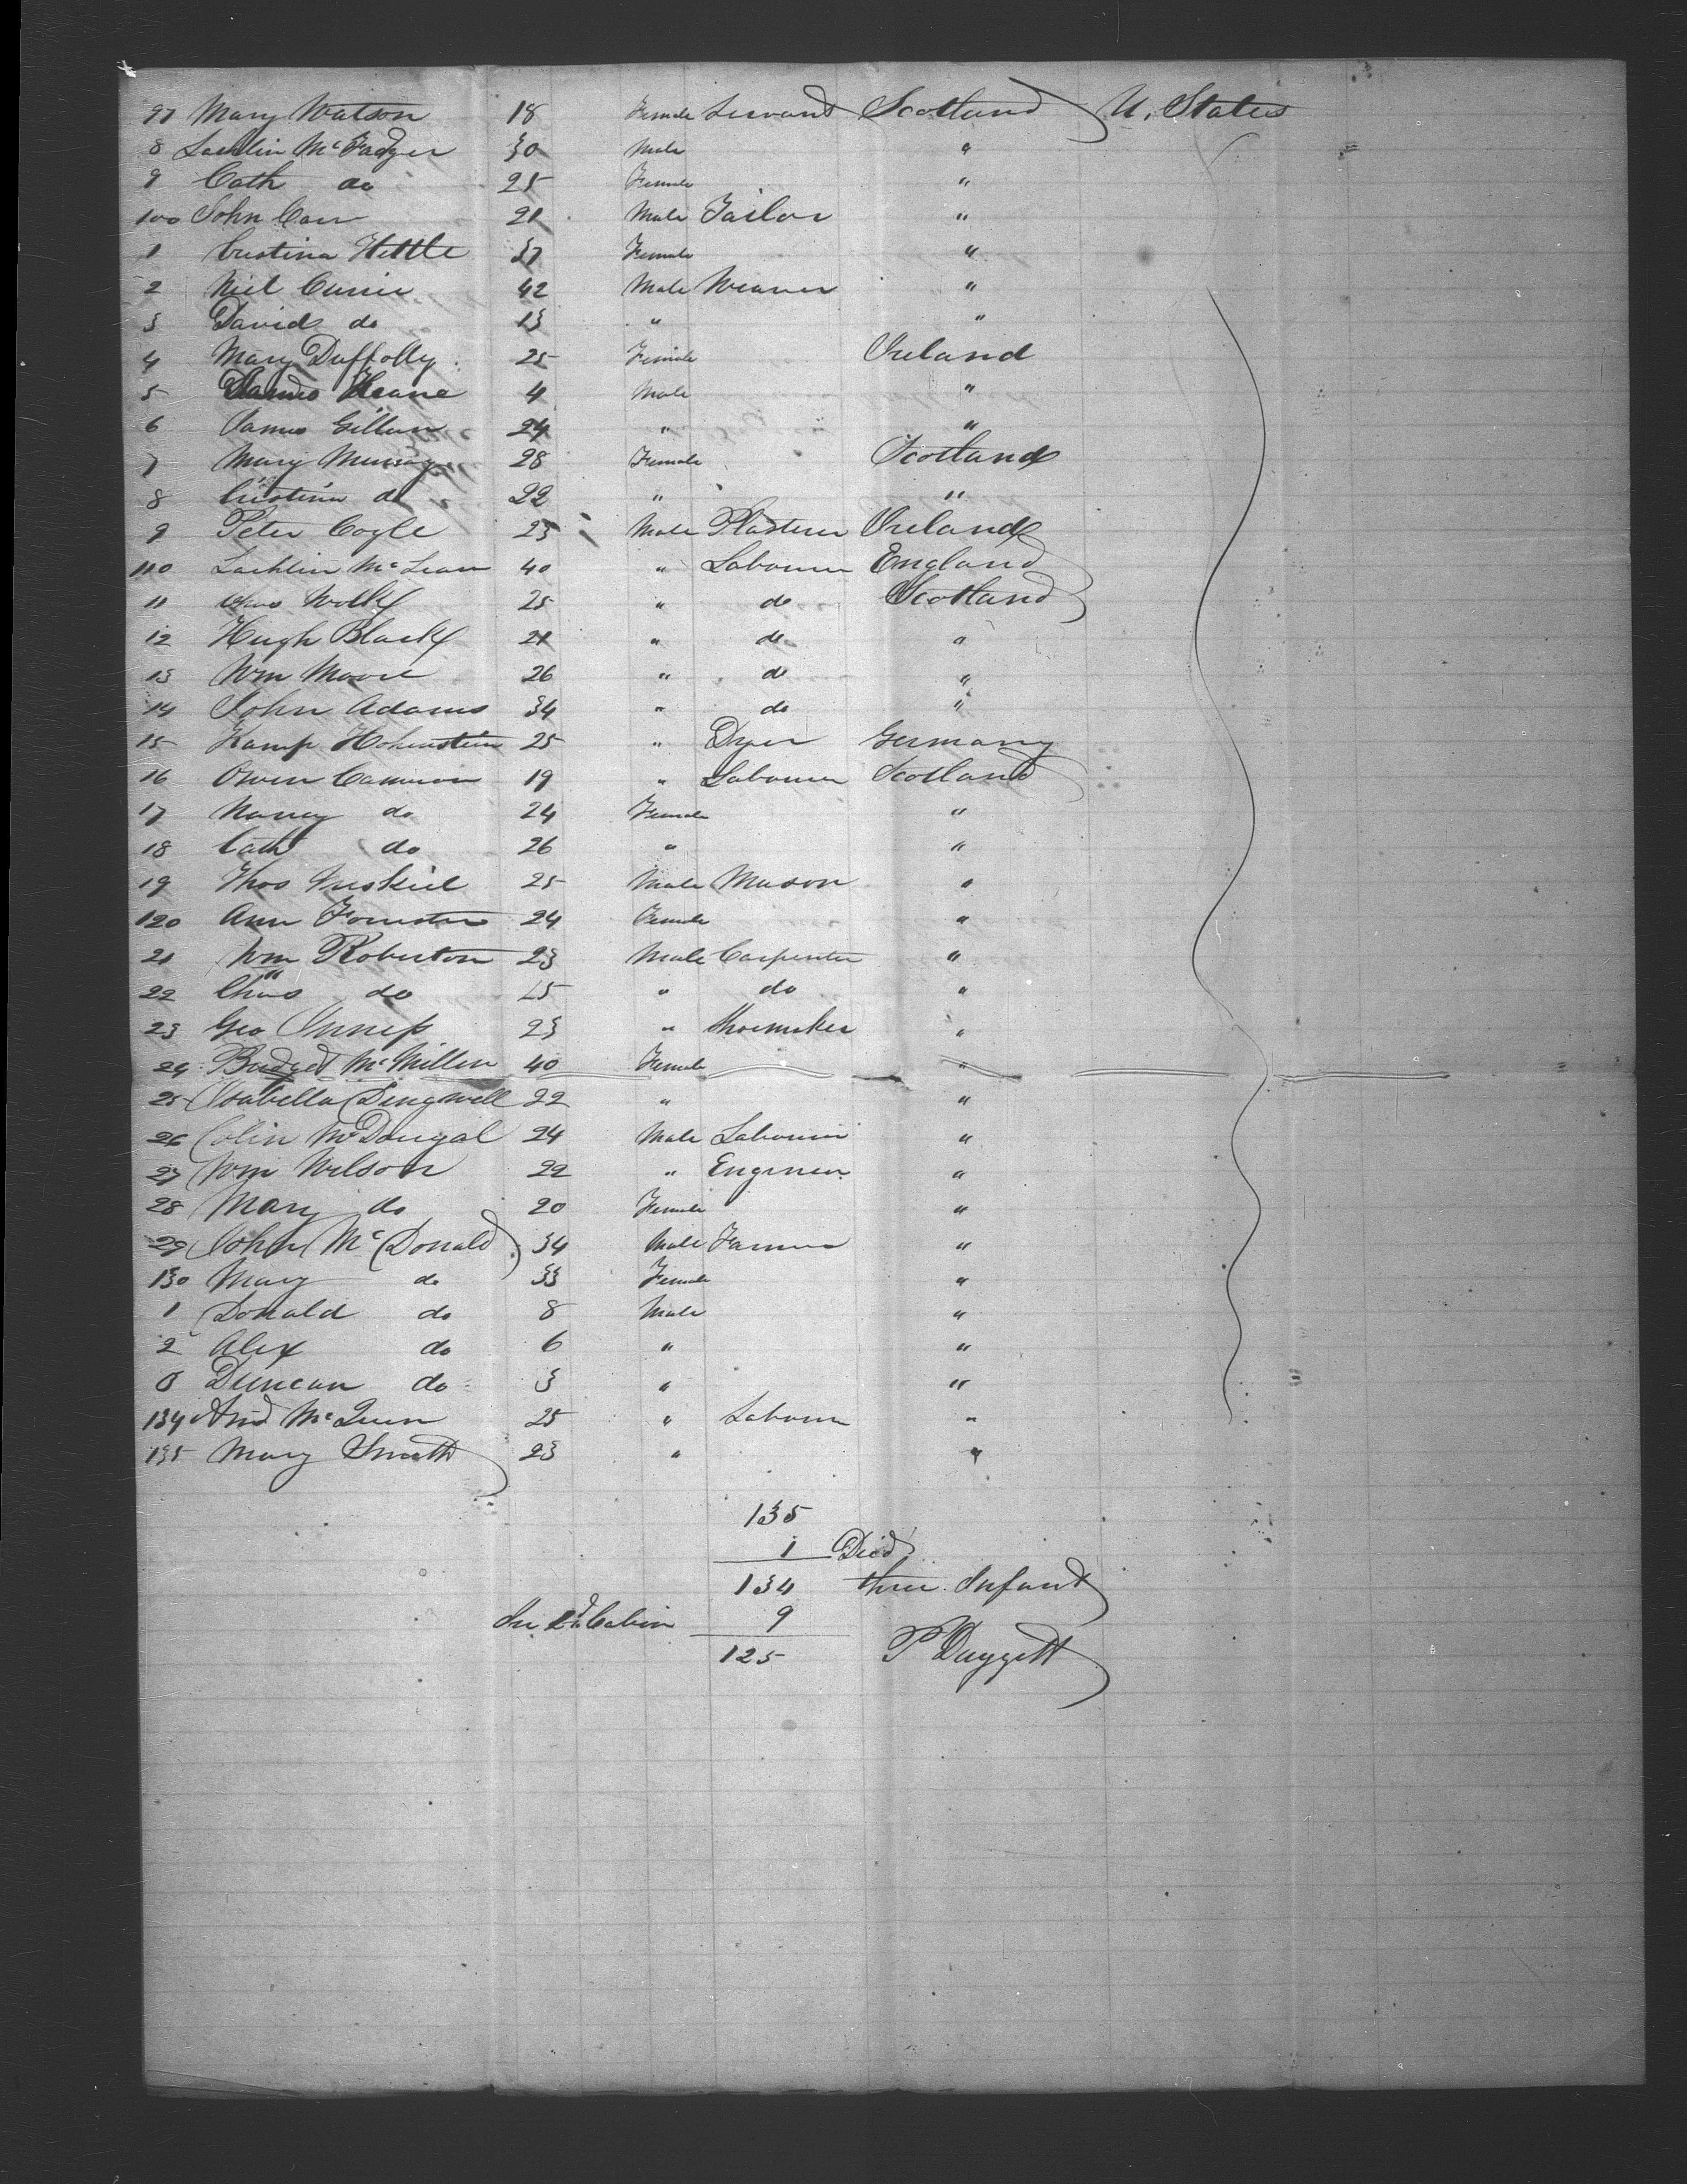 97 Mary Watson 18 Female Servant Scotland U. States
8 Lachlin McFadyen 30 Male "
9 Cath do 25 Female "
100 John Carr 21 Male Tailor "
1 Cristina Kettle 37 Female "
2 Niel Currie 42 Male Weaver "
3 David do 13 " "
4 Mary Duffolly 25 Female Ireland
5 James Keane 4 Male "
6 James Gillan 24 " "
7 Mary Murray 28 Female Scotland
8 Cristina do 22 " "
9 Peter Cogle 23 Male Plasterer Ireland
110 Lachlin McLean 40 " Labourer England
11 25 " do Scotland
12 Hugh Black 21 " do "
13 Wm Moore 26 " do "
14 John Adams 34 " do "
15 Kamp Hohenstein 25 " Dyer Germany
16 Owen Cameron 19 " Labourer Scotland
17 Nancy do 24 Female "
18 Cath do 26 " "
19 Thos 25 Male Mason "
120 Ann Forrester 24 Female "
21 Wm Robertson 23 Male Carpenter "
22 Chas do 25 " do "
23 Geo Inness 23 " Shoemaker "
24 Bridget McMillen 40 Female "
25 Isabella Dingwell 22 " "
26 Colin McDougal 24 Male Labourer "
27 Wm Wilson 22 " Engineer "
28 Mary do 20 Female "
29 John McDonald 34 Male Farmer "
130 Mary do 33 Female "
1 Donald do 8 Male "
2 Alex do 6 " "
3 Duncan do 3 " "
134 And McQueen 25 " Labourer "
135 Mary Smith 23 " "
135
1 Died
134 three Infants
In 2d Cabin 9
125 P Daggett